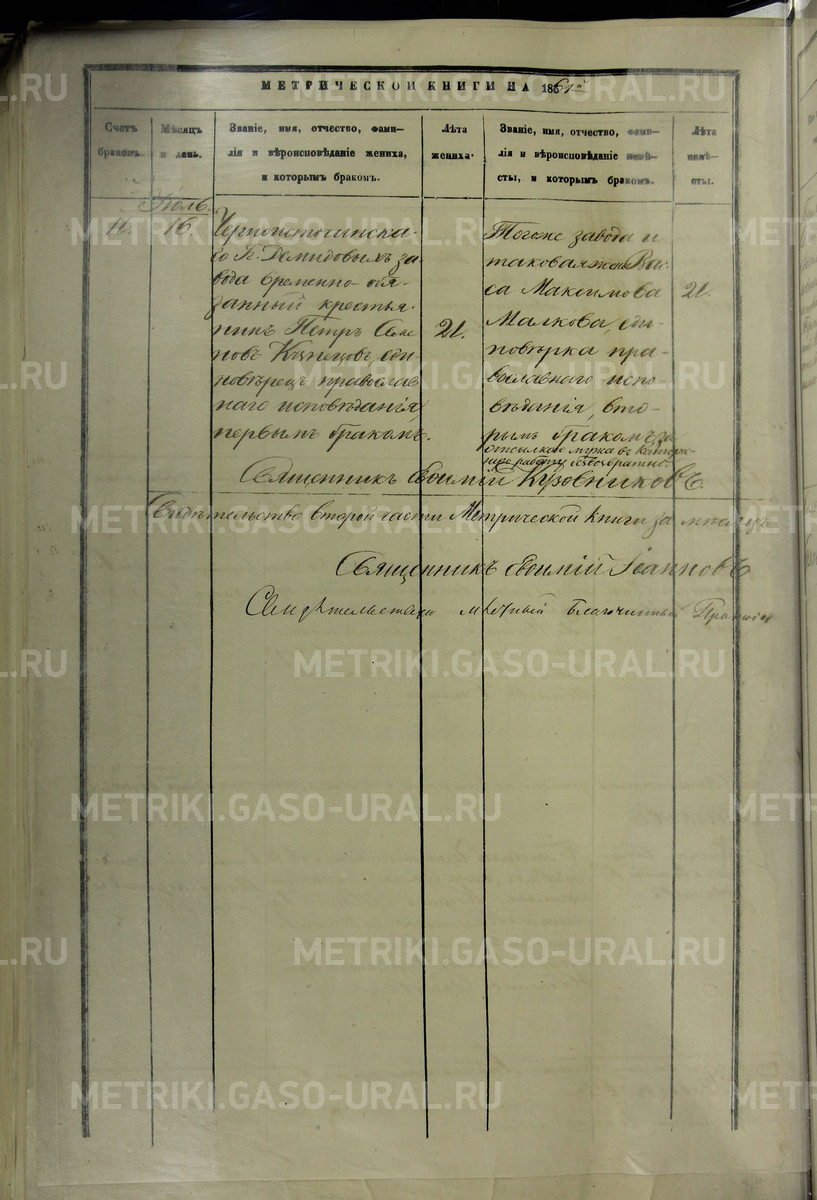 МЕТРИЧЕСКОЙ КНИГИ НА 1861й
Счетъ
браковъ.
Мѣсяцъ
и день.
Званіе, имя, отчество, фами-
лія и вѣроисповѣданіе жениха,
и которымъ бракомъ.
Лѣта
жениха.
Званіе, имя, отчество, фами-
лія и вѣроисповѣданіе невѣ-
сты, и которымъ бракомъ.
Лѣта
невѣ-
сты.
Іюль
11.
16.
Черноисточинска-
го Гг. Демидовымъ за-
вода временно-обя-
занный крестья-
нинъ Петръ Семе
новъ Кузнецовъ, еди-
новѣрецъ православ
наго исповѣданія,
первымъ бракомъ.
21.
Тогоже завода и
таковаяже
са Максимова
Малкова, еди-
новѣрка пра-
вославнаго испо-
вѣданія, вто-
рымъ бракомъ, за
отсылкою мужа въ каторж-
ную работу безвозвратно.
21.
Священникъ Евфимій Кузовниковъ.
Свидѣтельство второй части Метрической книги за мѣсяцъ
Священникъ Евфимій Іоанновъ
Свидѣтельствовалъ мѣстный Благочинный
METRIKI.GASO-URAL.RU